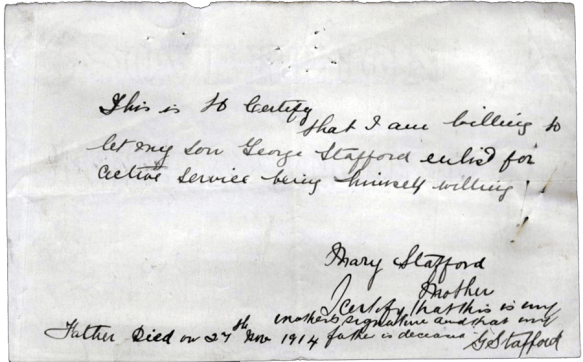 This is to Certify
that I am billing to
let my son George Stafford enlisd for
active service being himself willing
Mary Stafford
Mother
I certify that this is my
mothers signature and that my
Father Died on 27th Nov 1914 father is deceased GStafford